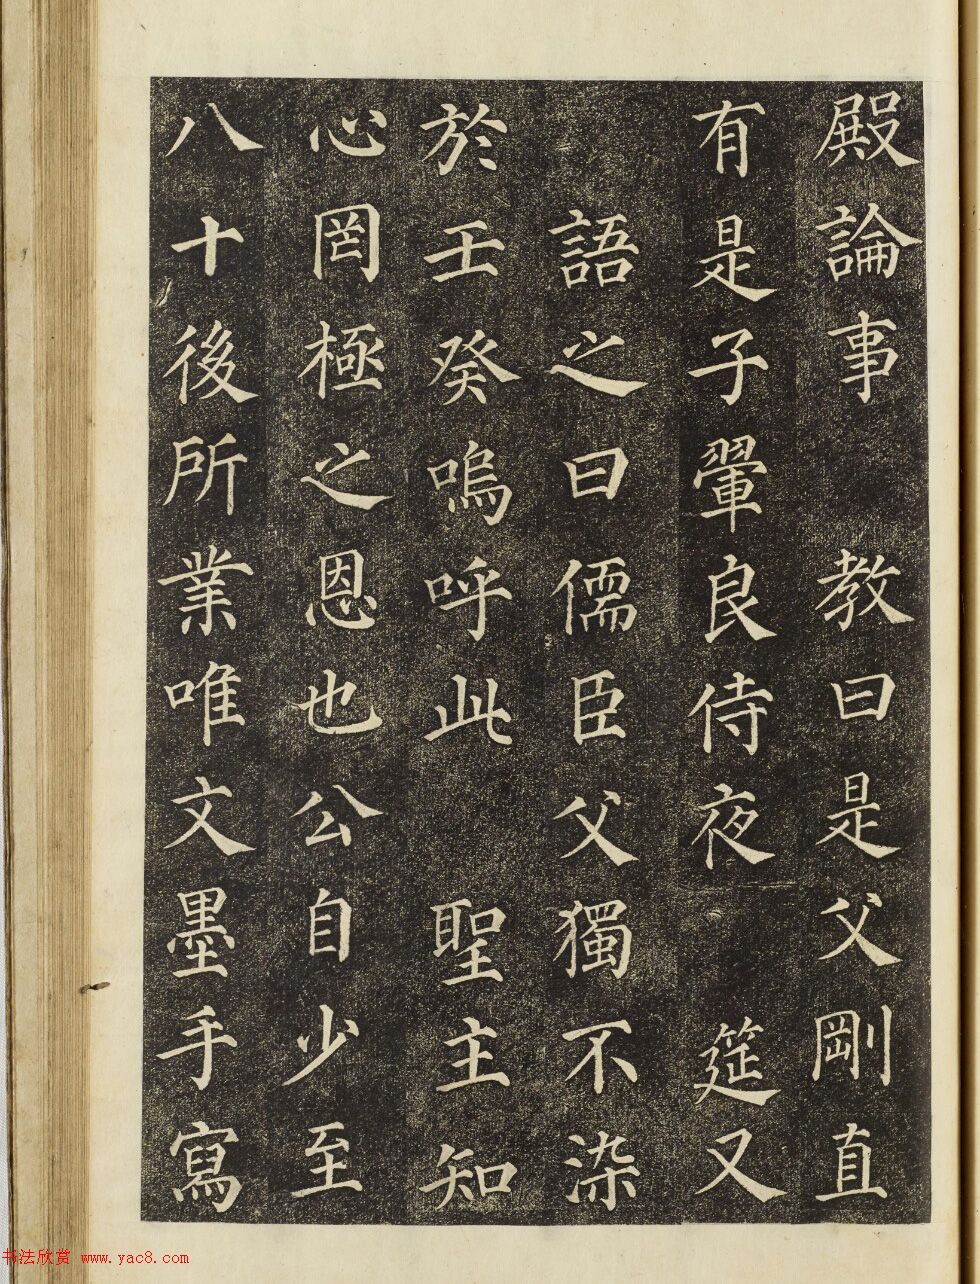 殿論事　教曰是父剛直
有是子翬良侍夜　筵又
語之曰儒臣父獨不染
於壬癸嗚呼此　聖主知
心罔極之恩也公自少至
八十後所業唯文墨手寫
书法欣赏 www.yac8.com